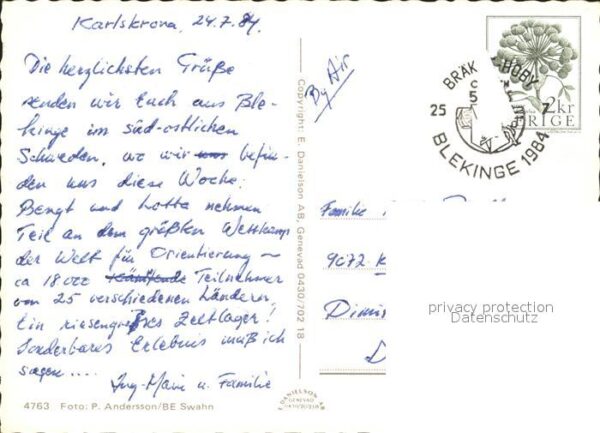 Karlskrona, 24.7.84
Die herzlichsten Grüße
senden wir Euch aus Ble-
kinge im süd-östlichen
Schweden, wo wir uns befin-
den uns diese Woche.
Bengt und Lotta nehmen
Teil an dem größten Wettkamp
der Welt für Orientierung –
ca 18000 Teilnehmer
von 25 verschiedenen Ländern.
Ein riesengroßes Zeltlager!
Sonderbares Erlebnis muß ich
sagen....
Ing-Marie u. Familie
4763 Foto: P. Andersson/BE Swahn
Copyright: E. Danielson AB, Genevad 0430/702 18
By Air
BRÄK HOBY
25 7
BLEKINGE 1984
2kr
SVERIGE
Familie
9072 K
Dinis
D
privacy protection
Datenschutz
E. DANIELSON AB
GENEVAD
0430/702 18